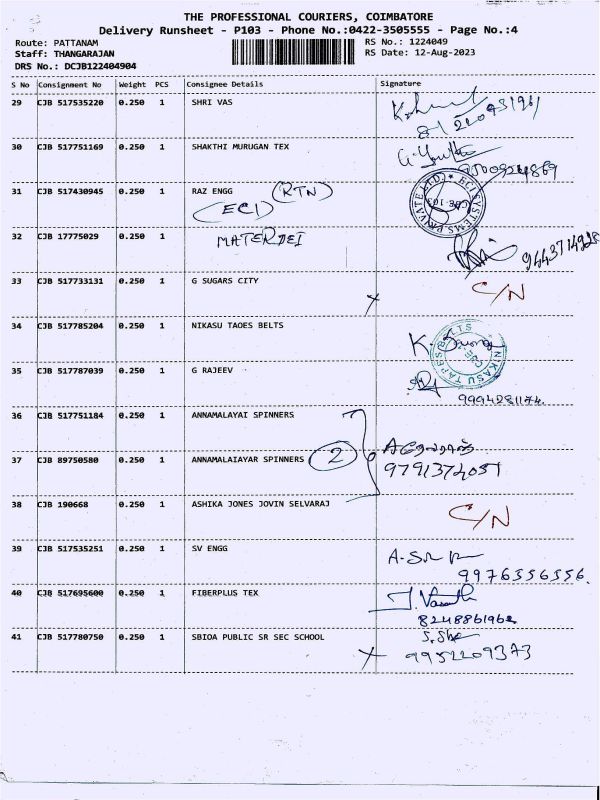 THE PROFESSIONAL COURIERS, COIMBATORE
Delivery Runsheet - P103 - Phone No.:0422-3505555 - Page No.:4
Route: PATTANAM
RS No.: 1224049
Staff: THANGARAJAN
RS Date: 12-Aug-2023
DRS No.: DCJB122404904
S No Consignment No Weight PCS Consignee Details Signature
29 CJB 517535220 0.250 1 SHRI VAS
30 CJB 517751169 0.250 1 SHAKTHI MURUGAN TEX
31 CJB 517430945 0.250 1 RAZ ENGG (RTN)
(ECI)
ECI SYSTEMS PRIVATE LTD
CBE-103
32 CJB 17775029 0.250 1 MATERDEI
9443714928
33 CJB 517733131 0.250 1 G SUGARS CITY
x C/N
34 CJB 517785204 0.250 1 NIKASU TAOES BELTS
K.
NIKASU TAPES BELTS
35 CJB 517787039 0.250 1 G RAJEEV
9994281174.
36 CJB 517751184 0.250 1 ANNAMALAYAI SPINNERS
37 CJB 89750580 0.250 1 ANNAMALAIAYAR SPINNERS 2
9791374051
38 CJB 190668 0.250 1 ASHIKA JONES JOVIN SELVARAJ
C/N
39 CJB 517535251 0.250 1 SV ENGG
9976356556.
40 CJB 517695600 0.250 1 FIBERPLUS TEX
J. Vasanth
8248861962
41 CJB 517780750 0.250 1 SBIOA PUBLIC SR SEC SCHOOL
x 9952209373